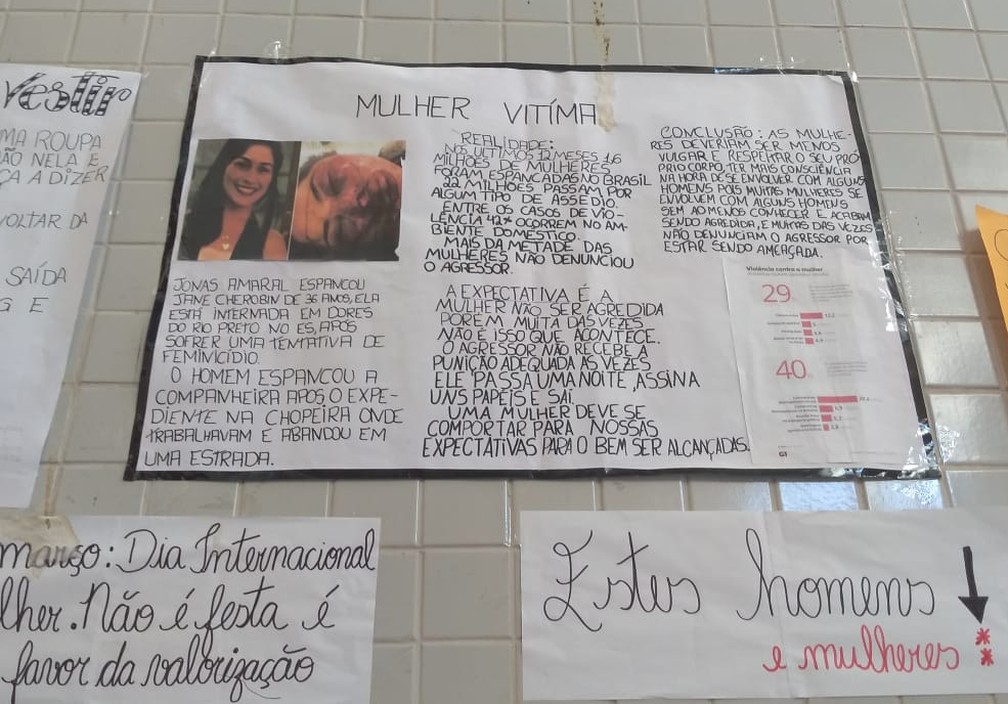 Vestir
MA ROUPA
ÃO NELA E
ÇA A DIZER
VOLTAR DA
SAÍDA
G E
MULHER VITÍMA
JONAS AMARAL ESPANCOU
JANE CHEROBIN DE 36 ANOS, ELA
ESTÁ INTERNADA EM DORES
DO RIO PRETO NO ES, APÓS
SOFRER UMA TENTATIVA DE
FEMINICÍDIO.
O HOMEM ESPANCOU A
COMPANHEIRA APÓS O EXPE-
DIENTE NA CHOPEIRA ONDE
TRABALHAVAM E ABANDOU EM
UMA ESTRADA.
REALIDADE:
NOS ÚLTIMOS 12 MESES 1,6
MILHÕES DE MULHERES
FORAM ESPANCADAS NO BRASIL
22 MILHÕES PASSAM POR
ALGUM TIPO DE ASSÉDIO.
ENTRE OS CASOS DE VIO-
LÊNCIA 42% OCORREM NO AM-
BIENTE DOMÉSTICO.
MAIS DA METADE DAS
MULHERES NÃO DENUNCIOU
O AGRESSOR.
A EXPECTATIVA É A
MULHER NÃO SER AGREDIDA
PORÉM MUITA DAS VEZES
NÃO É ISSO QUE ACONTECE.
O AGRESSOR NÃO RECEBE A
PUNIÇÃO ADEQUADA AS VEZES
ELE PASSA UMA NOITE, ASSINA
UNS PAPÉIS E SAÍ.
UMA MULHER DEVE SE
COMPORTAR PARA NOSSAS
EXPECTATIVAS PARA O BEM SER ALCANÇADAS.
CONCLUSÃO: AS MULHE-
RES DEVERIAM SER MENOS
VULGAR E RESPEITAR O SEU PRÓ
PRIO CORPO, TER MAIS CONSCIÊNCIA
NA HORA DE SE ENVOLVER COM ALGUNS
HOMENS POIS MUITAS MULHERES SE
ENVOLVEM COM ALGUNS HOMENS
SEM AO MENOS CONHECER E ACABAM
SENDO AGREDIDA, E MUITAS DAS VEZES
NÃO DENUNCIAM O AGRESSOR POR
ESTAR SENDO AMEAÇADA.
Violência contra a mulher
29%
40%
G1
março: Dia Internacional
lher. Não é festa é
favor da valorização
Estes homens
e mulheres